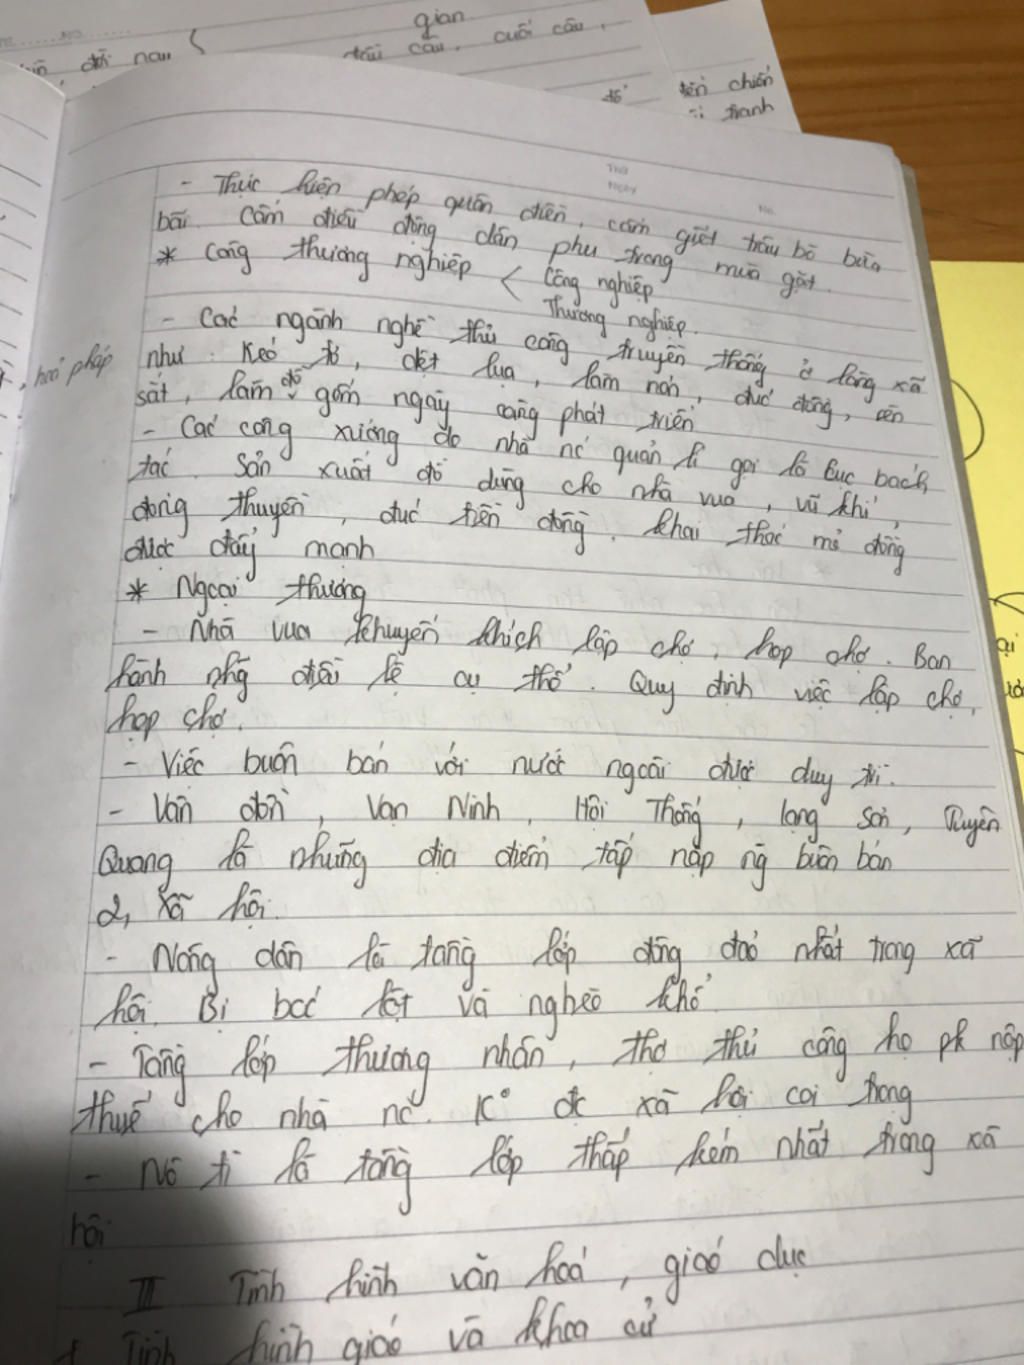 gian
đời nay
trái câu, cuối câu,
để
tên chiến
tranh
Thứ
Ngày
No.
- Thực hiện phép quân điền, cấm giết trâu bò bừa
bãi. Cấm điều động dân phu trong mùa gặt.
* Công thương nghiệp < Công nghiệp
Thương nghiệp.
- Các ngành nghề thủ công truyền thống ở làng xã
, hoá pháp
như: Kéo tơ, dệt lụa, làm nón, đúc đồng, rèn
sắt, làm đồ gốm ngày càng phát triển
- Các công xưởng do nhà nc quản lí gọi là Cục bách
tác. Sản xuất đồ dùng cho nhà vua, vũ khí,
đóng thuyền, đúc tiền đồng. khai thác mỏ đồng
được đẩy mạnh
* Ngoại thương
- Nhà vua khuyến khích lập chợ, họp chợ. Ban
hành nhg điều lệ cụ thể. Quy định việc lập chợ,
họp chợ.
- Việc buôn bán với nước ngoài được duy trì.
- Vân đồn, Vạn Ninh, Hội Thống, lạng Sơn, Tuyên
Quang là những địa điểm tấp nập ng buôn bán
2, Xã hội.
- Nông dân là tầng lớp đông đảo nhất trong xã
hội. Bị bóc lột và nghèo khổ
- Tầng lớp thương nhân, thợ thủ công họ pk nộp
thuế cho nhà nc. K° đc xã hội coi trọng
- Nô tì là tầng lớp thấp kém nhất trong xã
hội
III Tình hình văn hoá, giáo dục
1 Tình hình giáo và khoa cử